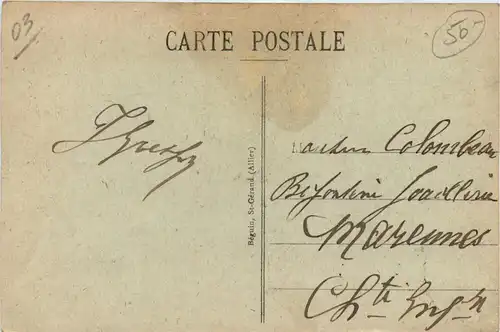 03
50-
CARTE POSTALE
Béguin, St-Gérand (Allier)
Colombeau
Bijouterie Joaillerie
Marennes
Ch.te Inf.re